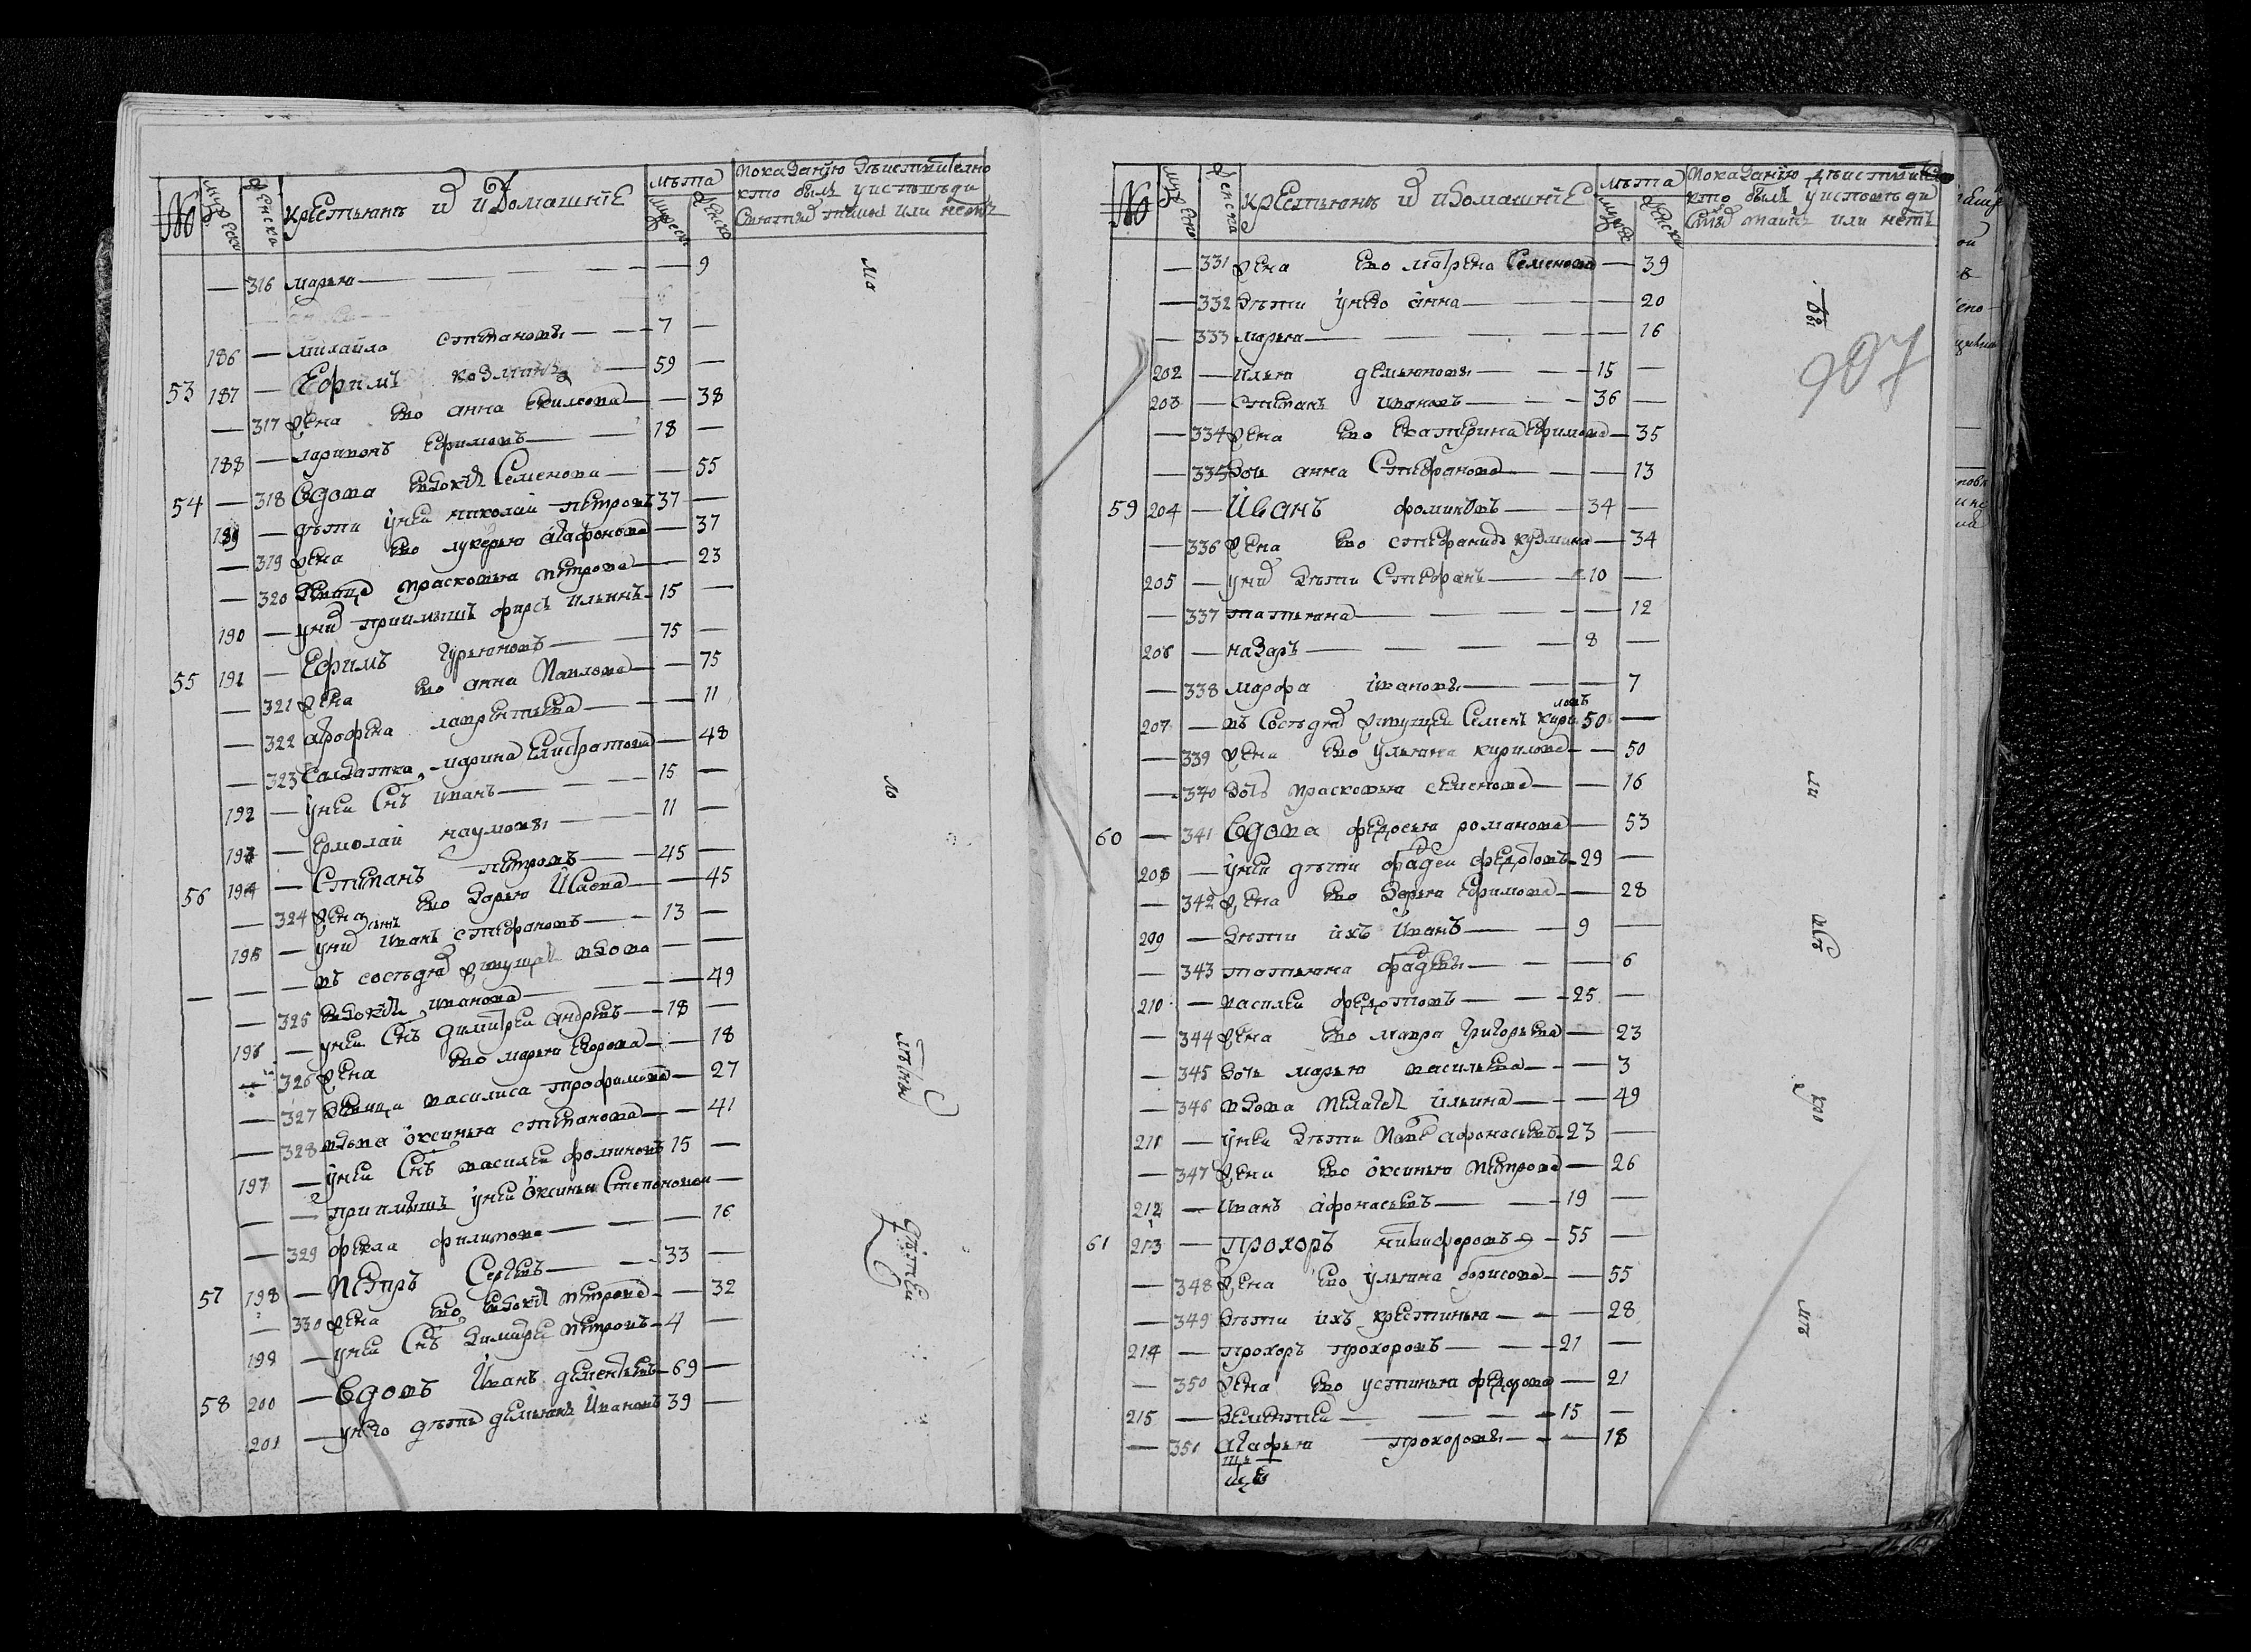 № мужеска женска крестьянъ и домашніе лѣта мужеска женска показанію дѣиствително
кто былъ у исповѣди
святыя тайны или нетъ
— 316 марья — 9
186 — михайла степановы — 7 —
53 187 — Ефимъ козминъ — 59 —
— 317 жена ево анна екимова — 38
188 — ларионъ ефимовъ — 18 —
54 — 318 Вдова евдокѣя Семенова — 55
189 — дѣти у неи николаи петровъ 37 —
— 319 жена ево лукерья агафонова — 37
— 320 девица прасковья петрова — 23
190 — у них приимышъ фирсъ ильинъ 15 —
55 191 — Ефимъ гурьяновъ — 75 —
— 321 жена ево анна Павлова — 75
— 322 агрофена лаврентьева — 11
— 323 Салдатка марина Елистратова — 48
192 — у неи Снъ иванъ — 15 —
193 — Ермолаи наумовы — 11 —
56 194 — Степанъ петровъ — 45 —
— 324 жена ево дарья Исаева — 45
195 — у них снъ иванъ стефановъ — 13 —
— — — въ соседях живущая вдова — —
— 325 евдокѣя иванова — 49
196 — у неи Снъ димитреи андреевъ — 18 —
— 326 жена ево марья егорова — 18
— 327 девица василиса трофимова — 27
— 328 вдова оксинья степанова — 41
197 — у неи Снъ василеи фоминовъ 15 —
— — приимышъ у неи оксиньи Степановои —
— 329 фекла филипова — 16
57 198 — Петръ Сергеевъ — 33 —
— 330 жена ево евдокѣя петрова — 32
199 — у неи Снъ димитреи петровъ — 4 —
58 200 — Вдовъ Иванъ дементьевъ — 69 —
201 — у него дѣти демьянъ Ивановъ 39 —
№ мужеска женска крестьянъ и домашніе лѣта мужеска женска показанію дѣиствително
кто былъ у исповѣди
святых таинъ или нетъ
907
— 331 жена ево матрена Семенова — 39
— 332 дѣти у нево анна — 20
— 333 марья — 16
202 — илья демьяновы — 15 —
203 — степанъ ивановъ — 36 —
— 334 жена ево Екатерина Ефимова — 35
— 335 дочь анна Стефанова — 13
59 204 — Иванъ фоминовъ — 34 —
— 336 жена ево стефанида кузмина — 34
205 — у них дѣти Стефанъ — 10 —
— 337 татьяна — 12
206 — назаръ — 8 —
— 338 марфа ивановы — 7
207 — въ Соседях живущеи Семенъ кириловъ 50 —
— 339 жена ево ульяна кирилова — 50
— 340 дочь прасковья семенова — 16
60 — 341 Вдова федосья романова — 53
208 — у неи дѣти фадеи федотовъ 29 —
— 342 жена ево дарья Ефимова — 28
209 — дѣти ихъ Иванъ — 9 —
— 343 татьяна фадеевы — 6
210 — василеи федотовъ — 25 —
— 344 жена ево мавра григорьева — 23
— 345 дочь марья васильева — 3
— 346 вдова пелагѣя ильина — 49
211 — у неи дѣти афонасьевъ 23 —
— 347 жена ево оксинья петрова — 26
212 — иванъ афонасьевъ — 19 —
61 213 — Прохоръ никифоровъ — 55 —
— 348 жена ево ульяна борисова — 55
— 349 дѣти ихъ крестинья — 28
214 — прохоръ прохоровъ — 21 —
— 350 жена ево устинья федорова — 21
215 — дементеи — 15 —
— 351 агафья прохоровы — 18